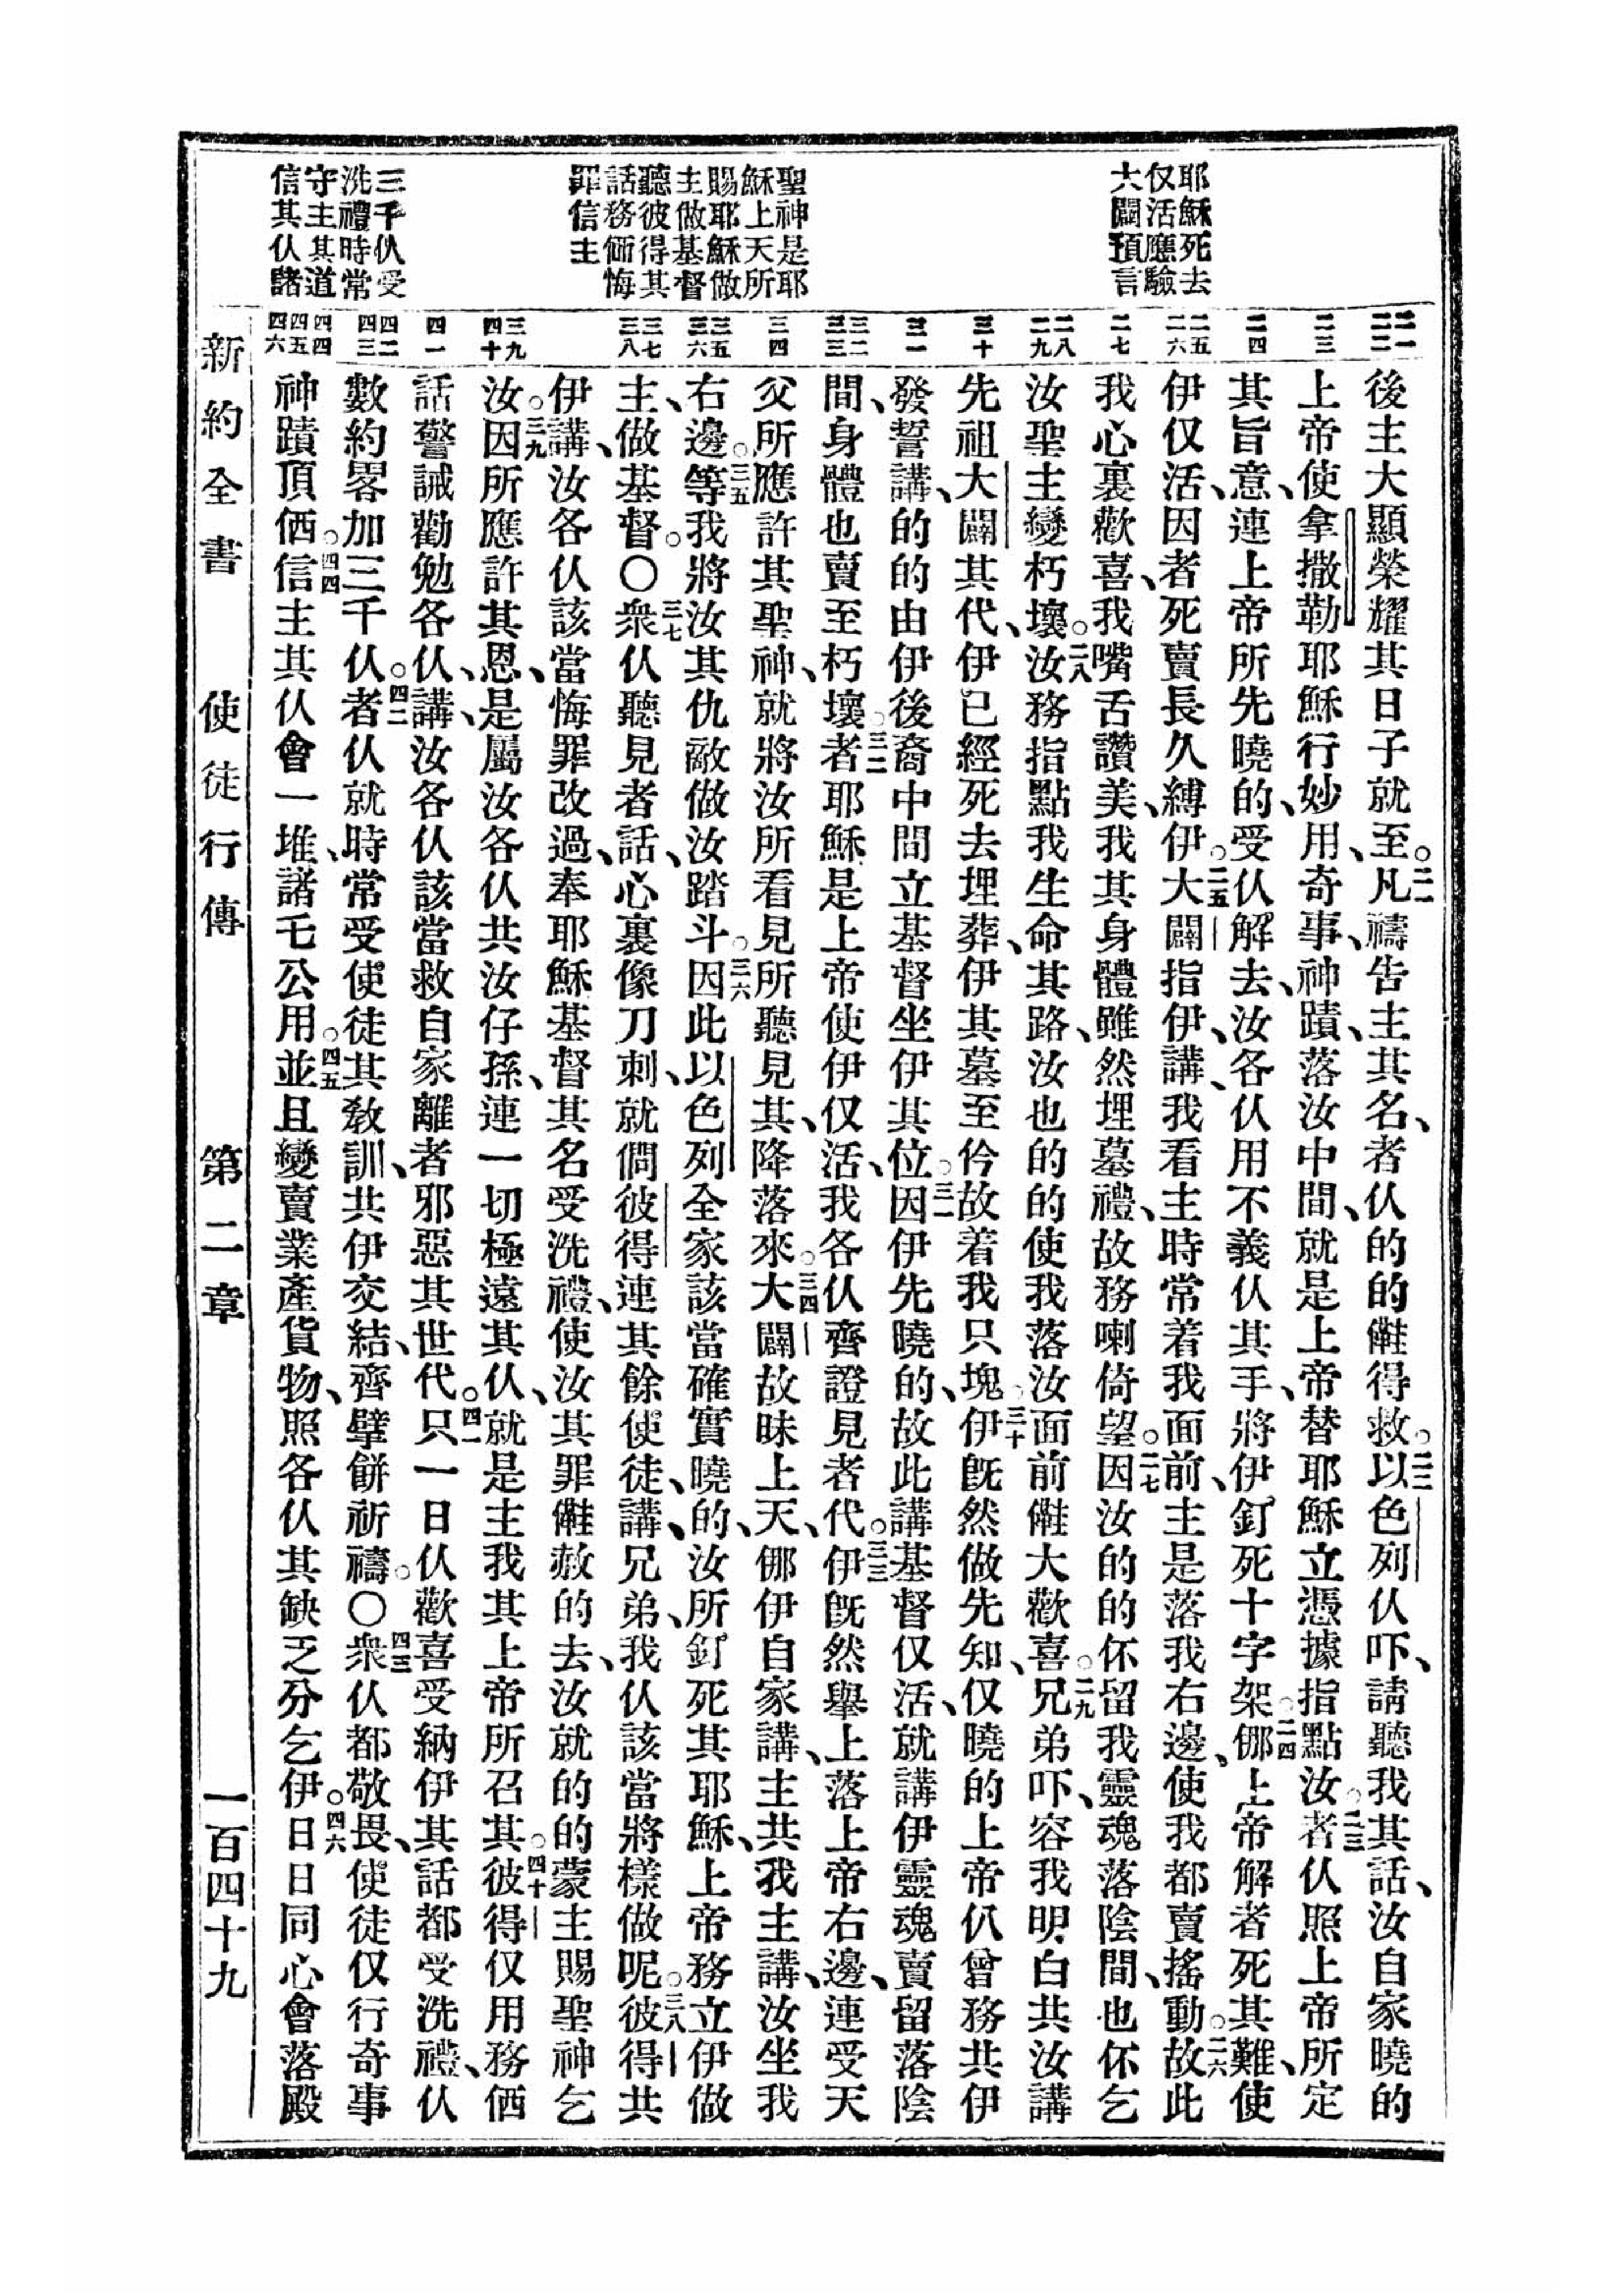 耶穌死去
仅活應驗
大闢預言
聖神是耶
穌上天所
賜耶穌做
主做基督
聽彼得其
話務価悔
罪信主
三千仈受
洗禮時常
守主其道
信其仈諸
二一
二二
二三
二四
二五
二六
二七
二八
二九
三十
三一
三二
三三
三四
三五
三六
三七
三八
三九
四十
四一
四二
四三
四四
四五
四六
後主大顯榮耀其日子就至。二一凡禱告主其名、者仈的的𠍁得救。二二以色列仈吓、請聽我其話、汝自家曉的
上帝使拿撒勒耶穌行妙用、奇事、神蹟、落汝中間、就是上帝替耶穌立憑據指點汝。二三者仈照上帝所定
其旨意、連上帝所先曉的、受仈解去、汝各仈用不義仈其手、將伊釘死十字架。二四㑚上帝解者死其難、使
伊仅活、因者死賣長久縛伊。二五大闢指伊、講、我看主時常着我面前、主是落我右邊、使我都賣搖動。二六故此
我心裏歡喜、我嘴舌讚美、我其身體雖然埋墓禮、故務喇倚望。二七因汝的的伓留我靈魂落陰間、也伓乞
汝聖主變朽壞。二八汝務指點我生命其路、汝也的的使我落汝面前𠍁大歡喜。二九兄弟吓、容我明白共汝講
先祖大闢其代、伊已經死去埋葬、伊其墓至仱故着我只塊。三十伊旣然做先知、仅曉的上帝仈曾務共伊
發誓講、的的由伊後裔中間立基督坐伊其位。三一因伊先曉的、故此講基督仅活、就講伊靈魂賣留落陰
間、身體也賣至朽壞。三二者耶穌是上帝使伊仅活、我各仈齊證見者代。三三伊旣然舉上落上帝右邊、連受天
父所應許其聖神、就將汝所看見所聽見其、降落來。三四大闢故昧上天、㑚伊自家講、主共我主講、汝坐我
右邊。三五等我將汝其仇敵做汝踏斗。三六因此以色列全家該當確實曉的、汝所釘死其耶穌、上帝務立伊做
主、做基督。〇三七衆仈聽見者話、心裏像刀刺、就僩彼得連其餘使徒、講、兄弟、我仈該當將樣做呢。三八彼得共
伊講、汝各仈該當悔罪改過、奉耶穌基督其名受洗禮、使汝其罪𠍁赦的去、汝就的的蒙主賜聖神乞
汝。三九因所應許其恩、是屬汝各仈共汝仔孫、連一切極遠其仈、就是主我其上帝所召其。四十彼得仅用務価
話警誡勸勉各仈、講、汝各仈該當救自家離者邪惡其世代。四一只一日仈歡喜受納伊其話都受洗禮、仈
數約畧加三千仈。四二者仈就時常受使徒其敎訓、共伊交結、齊擘餅祈禱。〇四三衆仈都敬畏、使徒仅行奇事
神蹟頂価。四四信主其仈會一堆、諸乇公用。四五並且變賣業產貨物、照各仈其缺乏分乞伊。四六日日同心會落殿
新約全書　使徒行傳　第二章　一百四十九